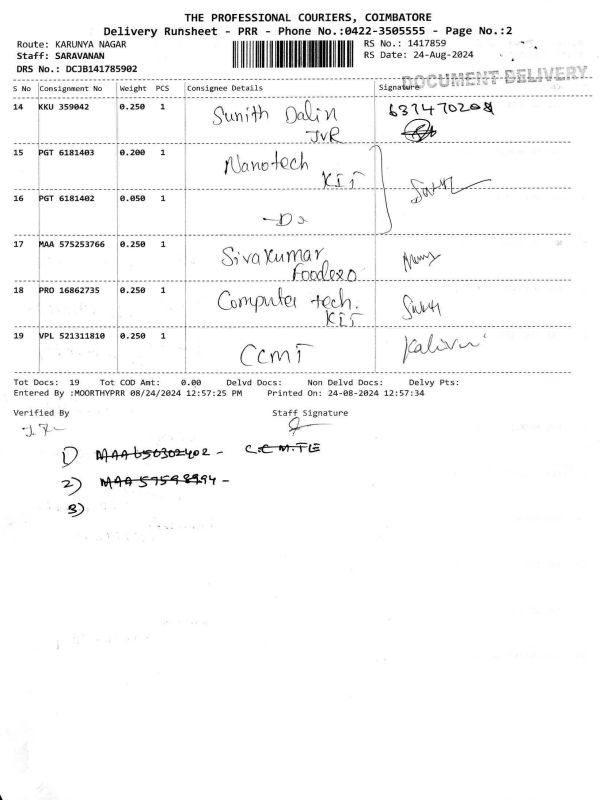 THE PROFESSIONAL COURIERS, COIMBATORE
Delivery Runsheet - PRR - Phone No.:0422-3505555 - Page No.:2
Route: KARUNYA NAGAR RS No.: 1417859
Staff: SARAVANAN RS Date: 24-Aug-2024
DRS No.: DCJB141785902
DOCUMENT DELIVERY
S No Consignment No Weight PCS Consignee Details Signature
14 KKU 359042 0.250 1 Sunith Dalin
JVR
15 PGT 6181403 0.200 1 Nanotech
KIT
16 PGT 6181402 0.050 1 -Do
17 MAA 575253766 0.250 1 Sivakumar
18 PRO 16862735 0.250 1 Computer tech.
KIT
19 VPL 521311810 0.250 1 CCMT
Tot Docs: 19 Tot COD Amt: 0.00 Delvd Docs: Non Delvd Docs: Delvy Pts:
Entered By :MOORTHYPRR 08/24/2024 12:57:25 PM Printed On: 24-08-2024 12:57:34
Verified By Staff Signature
1) MAA 656302402 -
2) -
3)